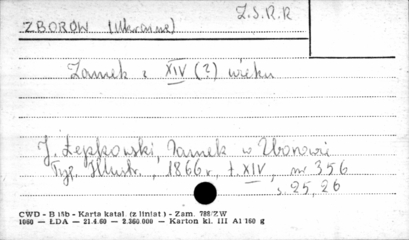 Z.S.R.R
ZBORÓW (Ukraine)
Zamek z XIV (?) wieku
J. Łepkowski, Zamek w Zborowie
Tyg. Illustr., 1866 r, t. XIV, nr 356
s. 25, 26
CWD - B 15b - Karta katal. (z liniat) - Zam. 788/ZW
1060 — ŁDA — 21.4.60 — 2.360.000 — Karton kl. III A1 160 g